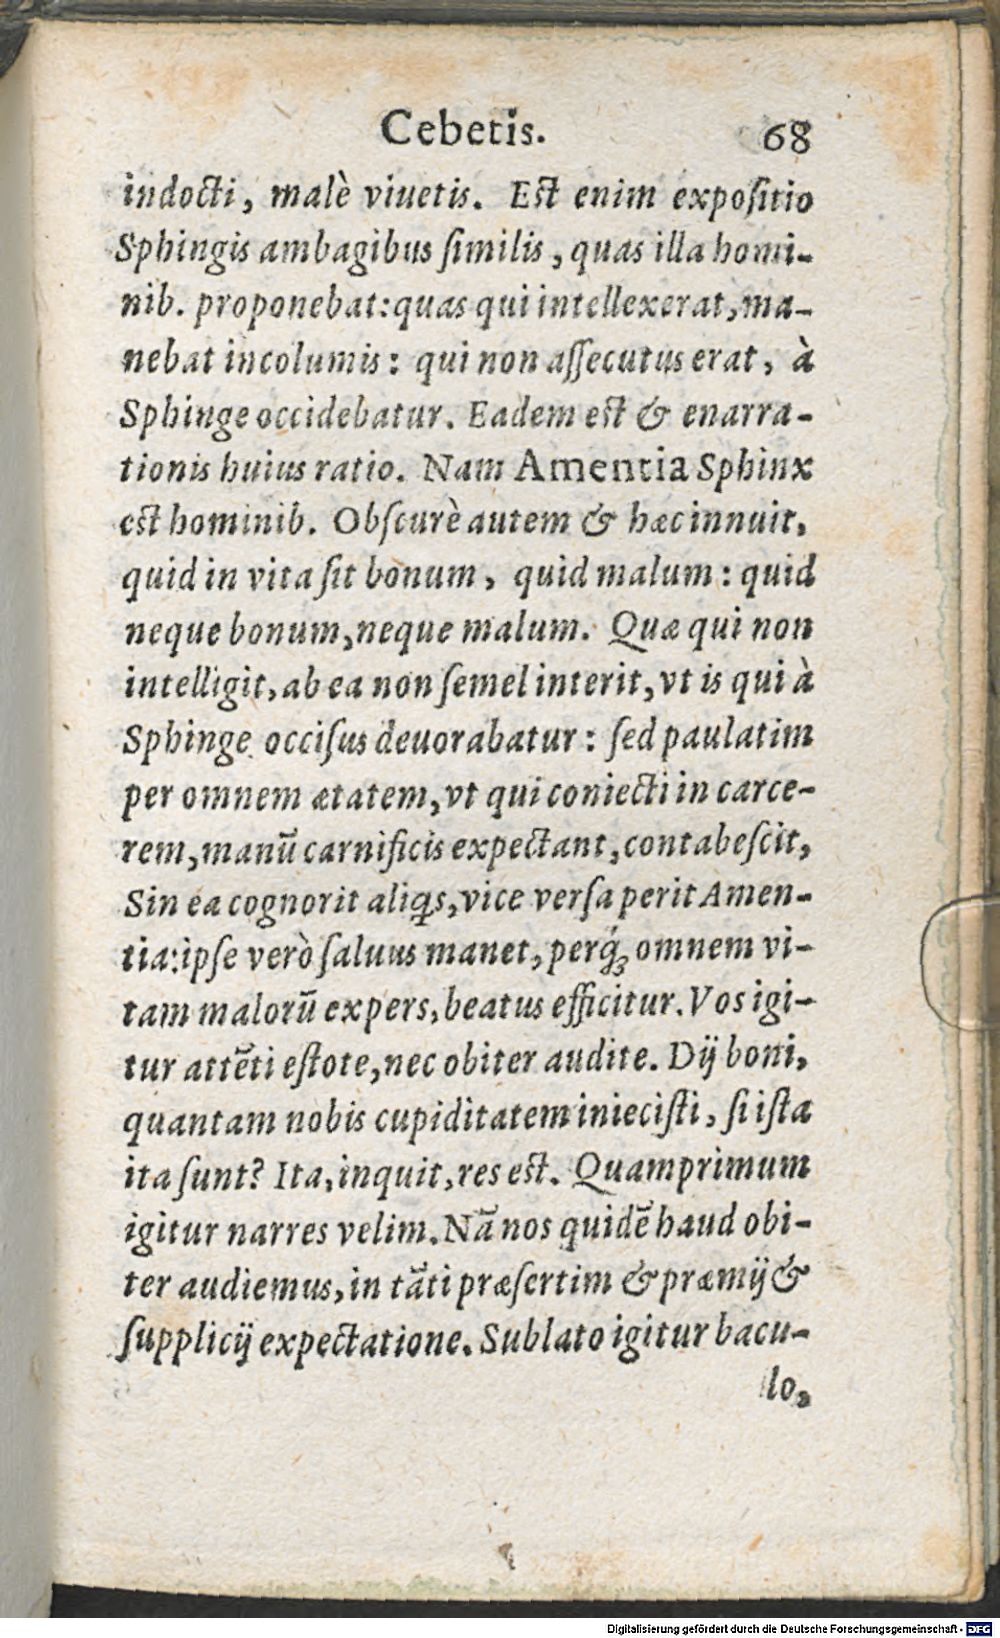 Cebetis. 68
indocti, malè viuetis. Est enim expoſitio
Sphingis ambagibus ſimilis, quas illa homi-
nib. proponebat: quas qui intellexerat, ma-
nebat incolumis: qui non aſſecutus erat, à
Sphinge occidebatur. Eadem est & enarra-
tionis huius ratio. Nam Amentia Sphinx
est hominib. Obſcurè autem & hæc innuit,
quid in vita ſit bonum, quid malum: quid
neque bonum, neque malum. Quæ qui non
intelligit, ab ea non ſemel interit, vt is qui à
Sphinge occiſus deuorabatur: ſed paulatim
per omnem ætatem, vt qui coniecti in carce-
rem, manū carnificis expectant, contabeſcit,
Sin ea cognorit aliq̃s, vice verſa perit Amen-
tia: ipſe verò ſaluus manet, perq́; omnem vi-
tam malorū expers, beatus efficitur. Vos igi-
tur attēti eſtote, nec obiter audite. Dij boni,
quantam nobis cupiditatem inieciſti, ſi iſta
ita ſunt? Ita, inquit, res est. Quamprimum
igitur narres velim. Nā nos quidē haud obi-
ter audiemus, in tāti præſertim & præmij &
ſupplicij expectatione. Sublato igitur bacu-
lo,
Digitalisierung gefördert durch die Deutsche Forschungsgemeinschaft - DFG